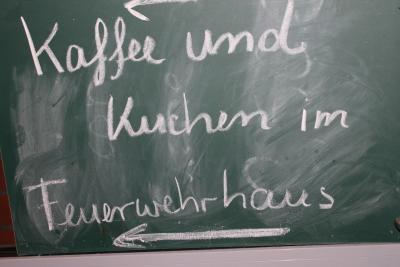 Kaffee und
Kuchen im
Feuerwehrhaus